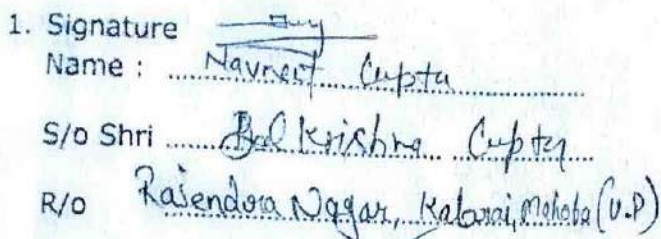 1. Signature
Name : Navneet Gupta
S/o Shri Bal Krishna Gupta
R/o Rajendra Nagar, Kabrai, Mahoba (U.P)